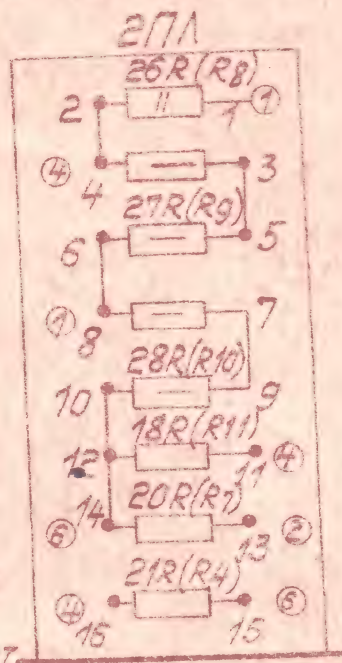 2ПЛ
26R(R8)
2 1 ①
④ 4 3
27R(R9)
6 5
① 8 7
28R(R10)
10 9
18R(R11)
12 11 ④
20R(R7)
⑥ 14 13 ②
21R(R4)
④ 16 15 ⑤